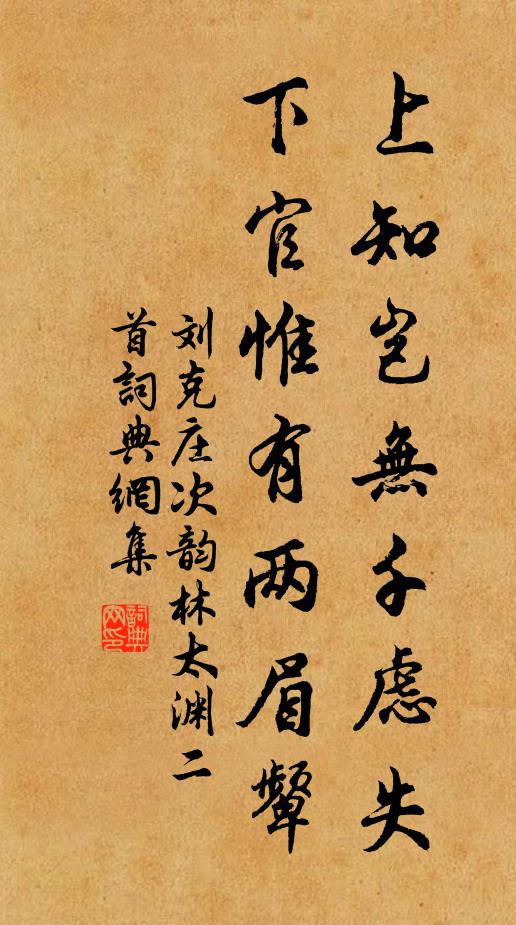 上知岂無千慮失
下官惟有两眉颦
刘克庄次韵林太渊二
首詞典網集
詞典網印